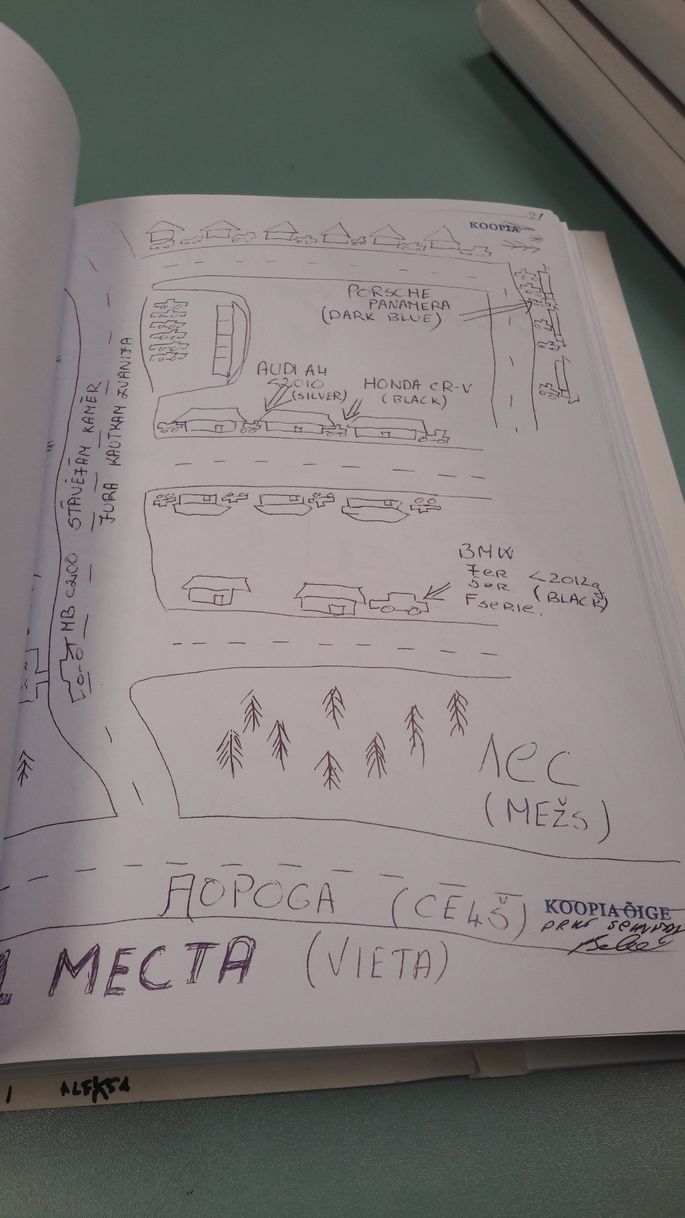 21
KOOPIA
PORSCHE
PANAMERA
(DARK BLUE)
AUDI A4
<2010
(SILVER)
HONDA CR-V
(BLACK)
MB C200 STĀVĒJĀM KAMĒR
JURA KAUTKAM ZVANIJA
BMW
7er
5er. <2012g
F serie. (BLACK)
ЛЕС
(MEŽS)
ДОРОГА (CEĻŠ)
KOOPIA ÕIGE
МЕСТА (VIETA)
ALEKSA